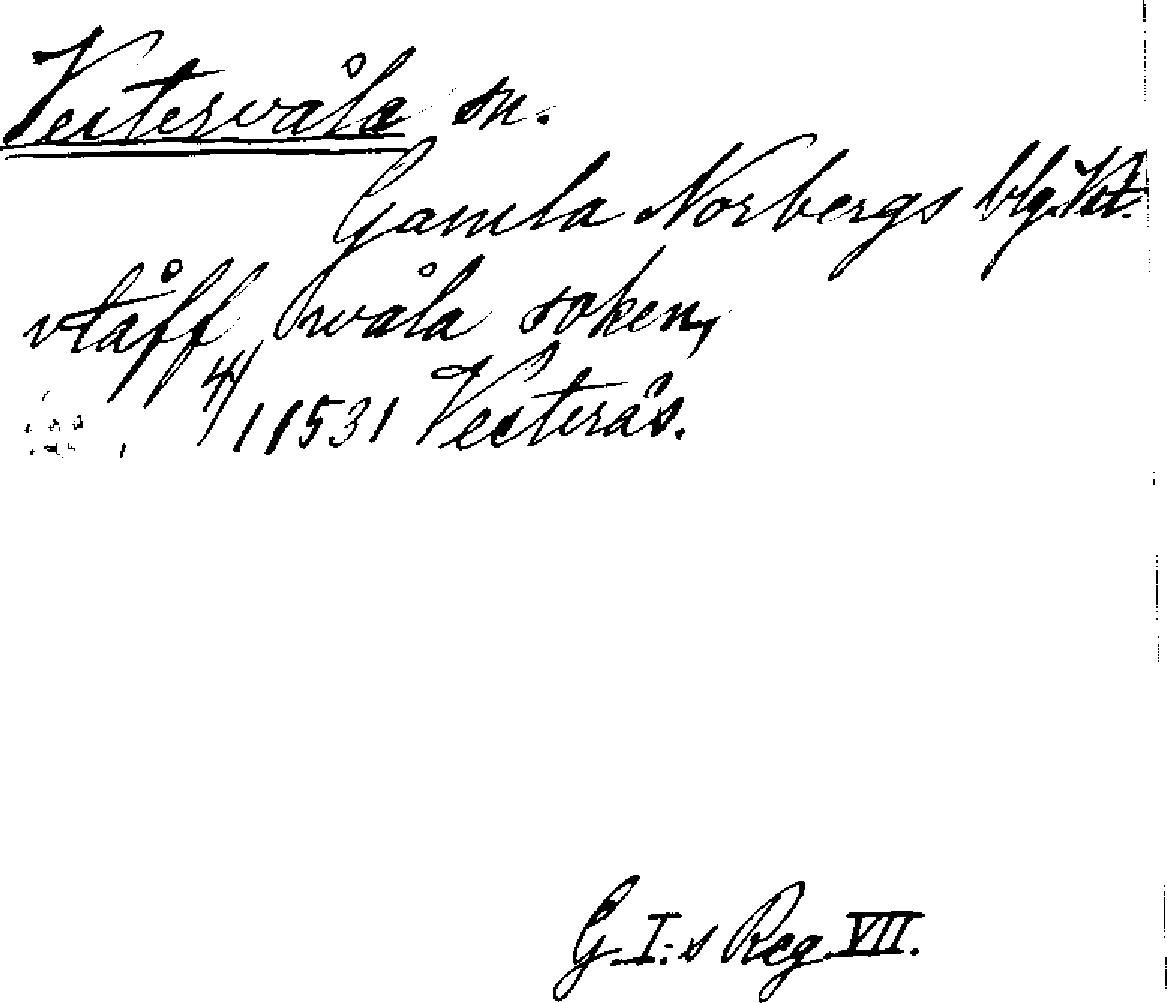 Vestervåla sn.
Gamla Norbergs blg. Vst.
vtåff Orvåla soken,
4/1 1531 Vesterås.
G. I:s Reg. VII.